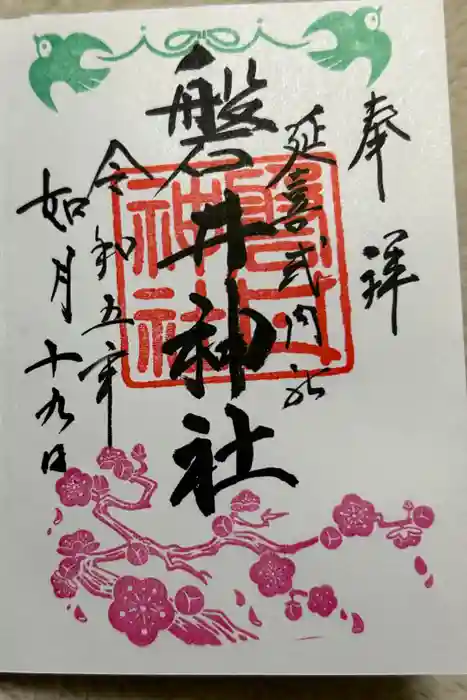 奉拝
延喜式内社
磐井神社
令和五年
如月十九日
磐井神社